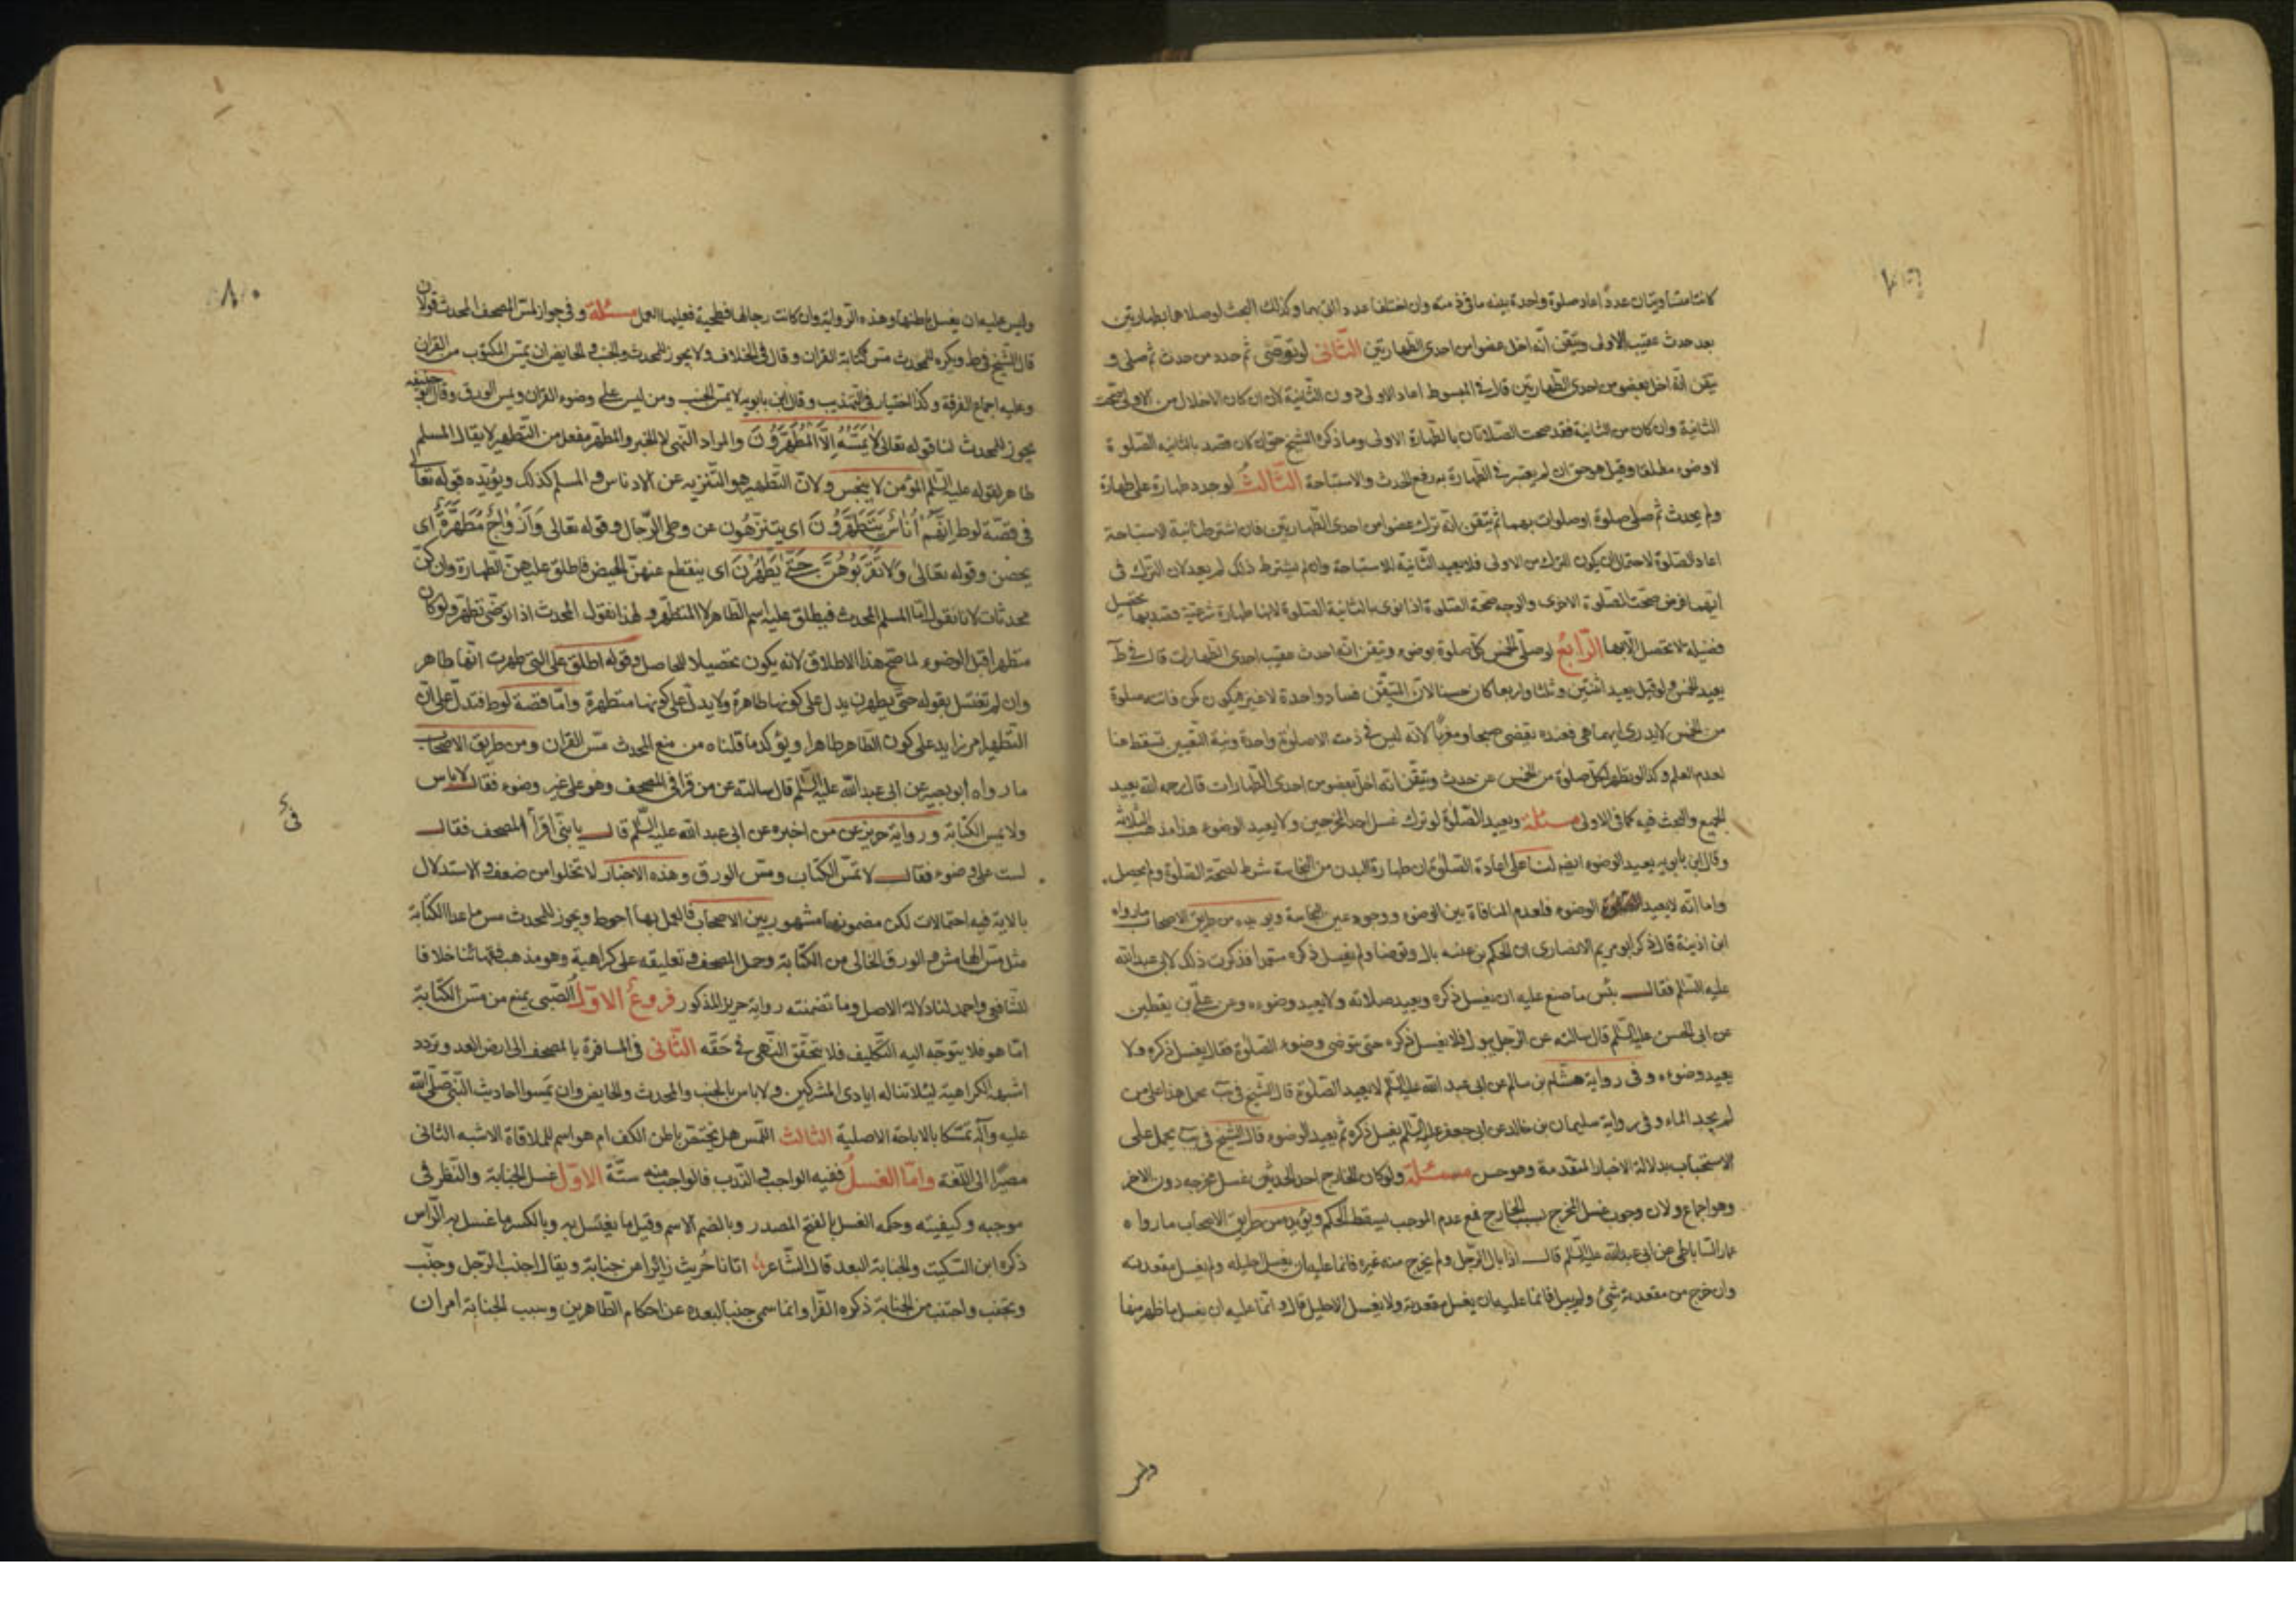 كانتا متساويتان عددًا اعاد صلوة واحدة بنية ما فى ذمته وان اختلفتا عددا اتى بهما وكذلك البحث لو صلاهما بطهارتين
بعد حدث عقيب الاولى وتيقن انه اخل عضوا من احدى الطهارتين الثانى لو توضى ثم جدد من حدث ثم صلى و
تيقن انه اخل بعضو من احدى الطهارتين قال فى المبسوط اعاد الاولى دون الثانية لانه ان كان الاخلال من الاولى صحت
الثانية وان كان من الثانية فقد صحت الصلاتان بالطهارة الاولى وما ذكره الشيخ حق ان كان قصد بالثانية الصلوة
لا وضوء مطلقا وقيل هو حق ان لم يعتبر فى الطهارة نية رفع الحدث والاستباحة الثالث لو جدد طهارة على طهارة
ولم يحدث ثم صلى صلوة او صلوات بهما ثم تيقن انه ترك عضوا من احدى الطهارتين فان اشترط نية الاستباحة
اعاد الصلوة لاحتمال ان يكون الترك من الاولى فلا تفيد الثانية للاستباحة وان لم يشترط ذلك لم يعد لان الترك فى
ايهما فرض صحت الصلوة الاخرى والوجه صحة الصلوة اذا نوى بالثانية الصلوة لانها طهارة شرعية قصد بها تحصيل
فضيلة لا تحصل الا بها الرابع لو صلى الخمس كل صلوة بوضوء وتيقن انه احدث عقيب احدى الطهارات قال فى ط
يعيد الخمس ولو قيل يعيد اثنتين وثلثا واربعا كان حسنا لان المتيقن فساد واحدة لا غير فيكون كمن فاته صلوة
من الخمس لا يدرى ايهما هى فعنده يقضى صبحا ومغربا لانه ليس فى ذمته الا صلوة واحدة ونية التعيين تسقط هنا
لعدم العلم وكذا لو تطهر لكل صلوة من الخمس عن حدث وتيقن انه اخل بعضو من احدى الطهارات قال رحمه الله يعيد
الجميع والبحث فيه كما فى الاولى مسئلة ويعيد الصلوة لو ترك غسل احد المخرجين ولا يعيد الوضوء هذا مذهب الثلاثة
وقال ابن بابويه يعيد الوضوء ايضا لنا على اعادة الصلوة ان طهارة البدن من النجاسة شرط لصحة الصلوة ولم يحصل
واما انه لا يعيد الوضوء فلعدم المنافاة بين الوضوء ووجود عين النجاسة ويؤيده من طريق الاصحاب ما رواه
ابن اذينة قال ذكر ابو مريم الانصارى ان الحكم بن عتيبة بال وتوضا ولم يغسل ذكره متعمدا فذكرت ذلك لابى عبد الله
عليه السلم فقال بئس ما صنع عليه ان يغسل ذكره ويعيد صلاته ولا يعيد وضوءه وعن على بن يقطين
عن ابى الحسن عليه السلم قال سالته عن الرجل يبول فلا يغسل ذكره حتى يتوضى وضوء الصلوة فقال يغسل ذكره ولا
يعيد وضوءه وفى رواية هشام بن سالم عن ابى عبد الله عليه السلم لا يعيد الصلوة قال الشيخ فى يب يحمل هذا على من
لم يجد الماء وفى رواية سليمان بن خالد عن ابى جعفر عليه السلم يغسل ذكره ثم يعيد الوضوء قال الشيخ فى يب يحمل على
الاستحباب بدلالة الاخبار المتقدمة وهو حسن مسئلة ولو كان الخارج احد الحدثين غسل مخرجه دون الاخر
وهو اجماع ولان وجوب غسل المخرج بسبب الخارج فمع عدم الموجب يسقط الحكم ويؤيده من طريق الاصحاب ما رواه
عمار الساباطى عن ابى عبد الله عليه السلم قال اذا بال الرجل ولم يخرج منه غيره فانما عليه ان يغسل احليله ولم يغسل مقعدته
وان خرج من مقعدته شئ ولم يبل فانما عليه ان يغسل مقعدته ولا يغسل الاحليل قال وانما عليه ان يغسل ما ظهر منها
وليس
وليس عليه ان يغسل باطنها وهذه الرواية وان كانت رجالها فطحية فعليها العمل مسئلة وفى جواز لمس المصحف للمحدث قولان
قال الشيخ فى ط ويكره للمحدث مس كتابة القران وقال فى الخلاف ولا يجوز للمحدث والجنب والحايض ان يمس المكتوب من القران
وعليه اجماع الفرقة وكذا اختياره فى التهذيب وقال ابن بابويه لا يمس الجنب ومن ليس على وضوء القران ويمس الورق وقال ابو حنيفه
يجوز للمحدث لنا قوله تعالى لا يمسه الا المطهرون والمراد النهى لا الخبر والمطهر مفعل من التطهير لا يقال المسلم
طاهر لقوله عليه السلم المؤمن لا ينجس ولان التطهير هو التنزيه عن الادناس والمسلم كذلك ويؤيده قوله تعالى
فى قصة لوط انهم اناس يتطهرون اى يتنزهون عن وطى الرجال وقوله تعالى وازواج مطهرة اى
يحضن وقوله تعالى ولا تقربوهن حتى يطهرن اى ينقطع عنهن الحيض فاطلق عليهن الطهارة وان كن
محدثات لانا نقول اما المسلم المحدث فيطلق عليه اسم الطاهر لا المتطهر ولهذا نقول المحدث اذا توضى تطهر ولو كان
متطهرا قبل الوضوء لما صح هذا الاطلاق لانه يكون تحصيلا للحاصل وقوله اطلق على التى طهرت انها طاهر
وان لم تغتسل بقوله حتى يطهرن يدل على كونها طاهرة ولا يدل على كونها متطهرة واما قصة لوط فتدل على ان
التطهير امر زايد على كون الطاهر طاهرا ويؤكد ما قلناه من منع المحدث مس القران ومن طريق الاصحاب
ما رواه ابو بصير عن ابى عبد الله عليه السلم قال سالته عن من قرا فى المصحف وهو على غير وضوء فقال لا باس
ولا يمس الكتابة ورواية حريز عن من اخبره عن ابى عبد الله عليه السلم قال يا بنى اقرأ المصحف فقال
لست على وضوء فقال لا تمس الكتاب ومس الورق وهذه الاخبار لا تخلوا من ضعف والاستدلال
بالاية فيه احتمالات لكن مضمونها مشهور بين الاصحاب فالعمل بها احوط ويجوز للمحدث مس ما عدا الكتابة
مثل مس الهامش والورق الخالى من الكتابة وحمل المصحف وتعليقه على كراهية وهو مذهب فقهائنا خلافا
للشافعى واحمد لنا دلالة الاصل وما تضمنته رواية حريز المذكور فروع الاول الصبى يمنع من مس الكتابة
اما هو فلا يتوجه اليه التكليف فلا يتحقق النهى فى حقه الثانى فى المسافرة بالمصحف الى ارض العدو تردد
اشبهه الكراهية لئلا تناله ايادى المشركين ولا باس بالجنب والمحدث والحايض وان يمسوا احاديث النبى صلى الله
عليه وآله تمسكا بالاباحة الاصلية الثالث اللمس هل يختص بباطن الكف ام هو اسم للملاقاة الاشبه الثانى
مصيرا الى اللغة واما الغسل ففيه الواجب والندب فالواجب منه ستة الاول غسل الجنابة والنظر فى
موجبه وكيفيته وحكمه الغسل بالفتح المصدر وبالضم الاسم وقيل ما يغتسل به وبالكسر ما غسل به الراس
ذكره ابن السكيت والجنابة البعد قال الشاعر اتانا حريث زائرا عن جنابة ويقال اجنب الرجل وجنب
وتجنب واجتنب من الجنابة ذكره الفرا وانما سمى جنبا لبعده عن احكام الطاهرين وسبب الجنابة امران
٨٠